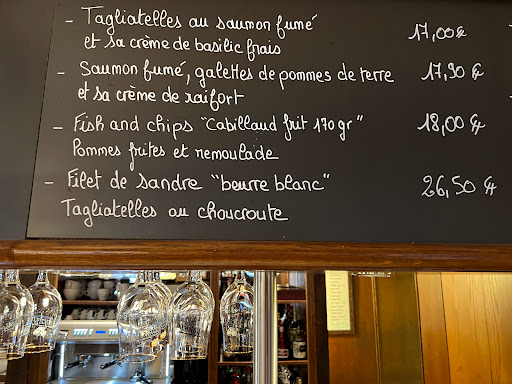 - Tagliatelles au saumon fumé 17,00€
et sa crème de basilic frais
- Saumon fumé, galettes de pommes de terre 17,90 €
et sa crème de raifort
- Fish and chips "Cabillaud frit 170gr" 18,00 €
Pommes frites et remoulade
- Filet de sandre "beurre blanc" 26,50 €
Tagliatelles au choucroute